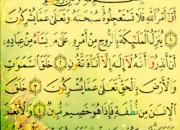 أَتَىٰ أَمْرُ ٱللَّهِ فَلَا تَسْتَعْجِلُوهُ سُبْحَٰنَهُۥ وَتَعَٰلَىٰ عَمَّا يُشْرِكُونَ
١ يُنَزِّلُ ٱلْمَلَٰٓئِكَةَ بِٱلرُّوحِ مِنْ أَمْرِهِۦ عَلَىٰ مَن يَشَآءُ مِنْ عِبَادِهِۦٓ
أَنْ أَنذِرُوٓا۟ أَنَّهُۥ لَآ إِلَٰهَ إِلَّآ أَنَا۠ فَٱتَّقُونِ ٢ خَلَقَ ٱلسَّمَٰوَٰتِ
وَٱلْأَرْضَ بِٱلْحَقِّ تَعَٰلَىٰ عَمَّا يُشْرِكُونَ ٣ خَلَقَ
ٱلْإِنسَٰنَ مِن نُّطْفَةٍ فَإِذَا هُوَ خَصِيمٌ مُّبِينٌ